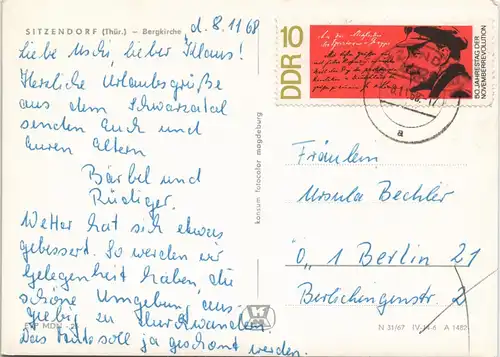 SITZENDORF (Thür.) – Bergkirche
d. 8.11.68
Liebe Uschi, lieber Klaus!
Herzliche Urlaubsgrüße
aus dem Schwarzatal
senden Euch und
Euren Eltern
Bärbel und
Rüdiger.
Wetter hat sich etwas
gebessert. So werden wir
Gelegenheit haben, die
schöne Umgebung aus-
giebig zu durchwandern.
Das Auto soll ja geschont werden.
EVP MDN
konsum fotocolor magdeburg
DDR 10
50. JAHRESTAG DER
NOVEMBERREVOLUTION
a
Fräulein
Ursula Bechler
1 Berlin 21
Berlichingenstr. 2
N 31/67 IV-14-6 A 1482